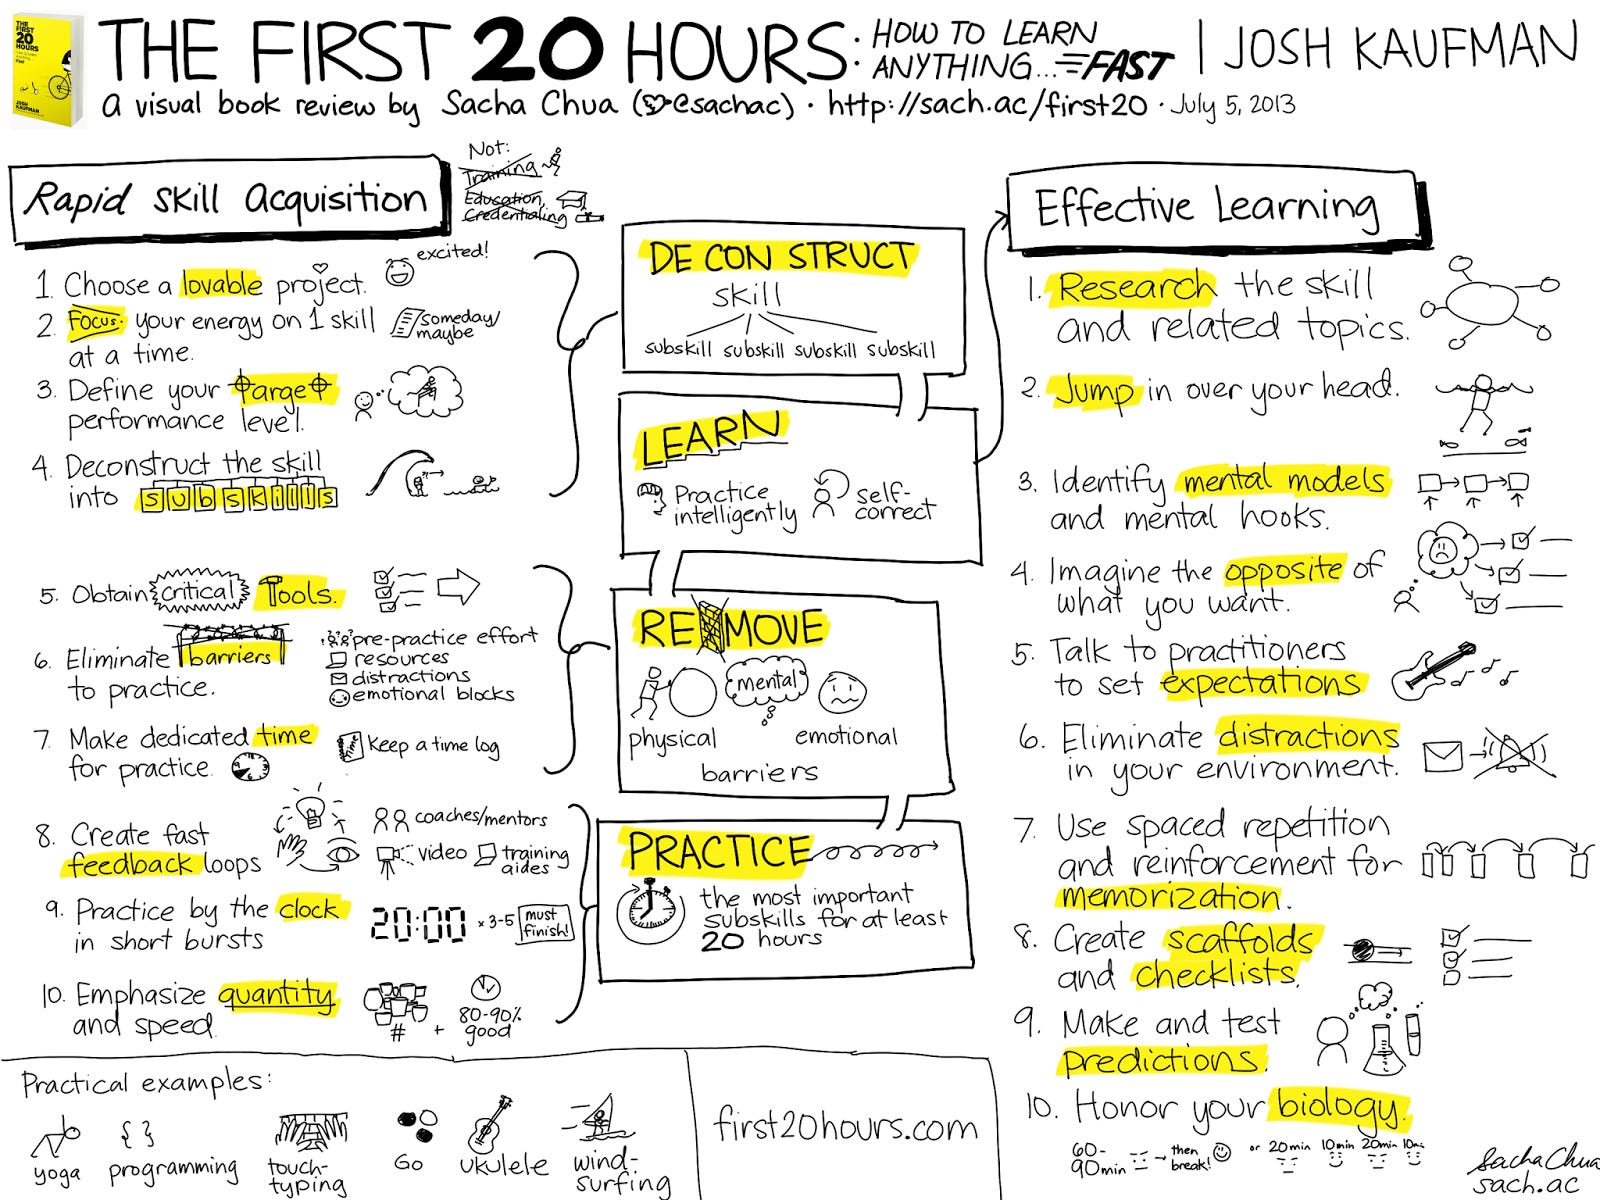 THE FIRST 20 HOURS
JOSH KAUFMAN
THE FIRST 20 HOURS: HOW TO LEARN ANYTHING... FAST | JOSH KAUFMAN
a visual book review by Sacha Chua (@sachac) · http://sach.ac/first20 · July 5, 2013
Rapid Skill Acquisition
Not:
Training
Education,
Credentialing
1. Choose a lovable project.
excited!
2. Focus your energy on 1 skill
at a time.
someday/
maybe
3. Define your target
performance level.
4. Deconstruct the skill
into subskills
5. Obtain critical Tools.
6. Eliminate barriers
to practice.
pre-practice effort
resources
distractions
emotional blocks
7. Make dedicated time
for practice.
Keep a time log
8. Create fast
feedback loops
coaches/mentors
video
training
aides
9. Practice by the clock
in short bursts
20:00 x 3-5
must
finish!
10. Emphasize quantity
and speed.
# +
80-90%
good
DECONSTRUCT
skill
subskill subskill subskill subskill
LEARN
Practice
intelligently
self-
correct
REMOVE
physical
mental
emotional
barriers
PRACTICE
the most important
subskills for at least
20 hours
Effective Learning
1. Research the skill
and related topics.
2. Jump in over your head.
3. Identify mental models
and mental hooks.
4. Imagine the opposite of
what you want.
5. Talk to practitioners
to set expectations
6. Eliminate distractions
in your environment.
7. Use spaced repetition
and reinforcement for
memorization.
8. Create scaffolds
and checklists.
9. Make and test
predictions.
10. Honor your biology.
60-
90min → then
break!
or 20min 10min 20min 10min
Practical examples:
yoga
programming
touch-
typing
Go
ukulele
wind-
surfing
first20hours.com
Sacha Chua
sach.ac